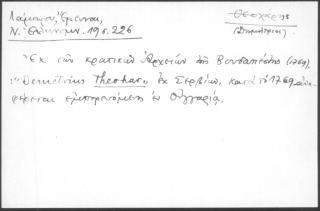 Λάμπρου, Ἔρευναι,
Ν. Ἑλληνομ. 19 σ. 226
Θεοχάρης
(Δημήτριος)
Ἐκ τῶν κρατικῶν Ἀρχείων τῆς Βουδαπέστης (1769).
: "Demetrius Theohar" ἐκ Σερβίων, κατὰ τὸ 1769 ἀνα-
φέρεται ἐμπορευόμενος ἐν Οὑγγαρίᾳ.